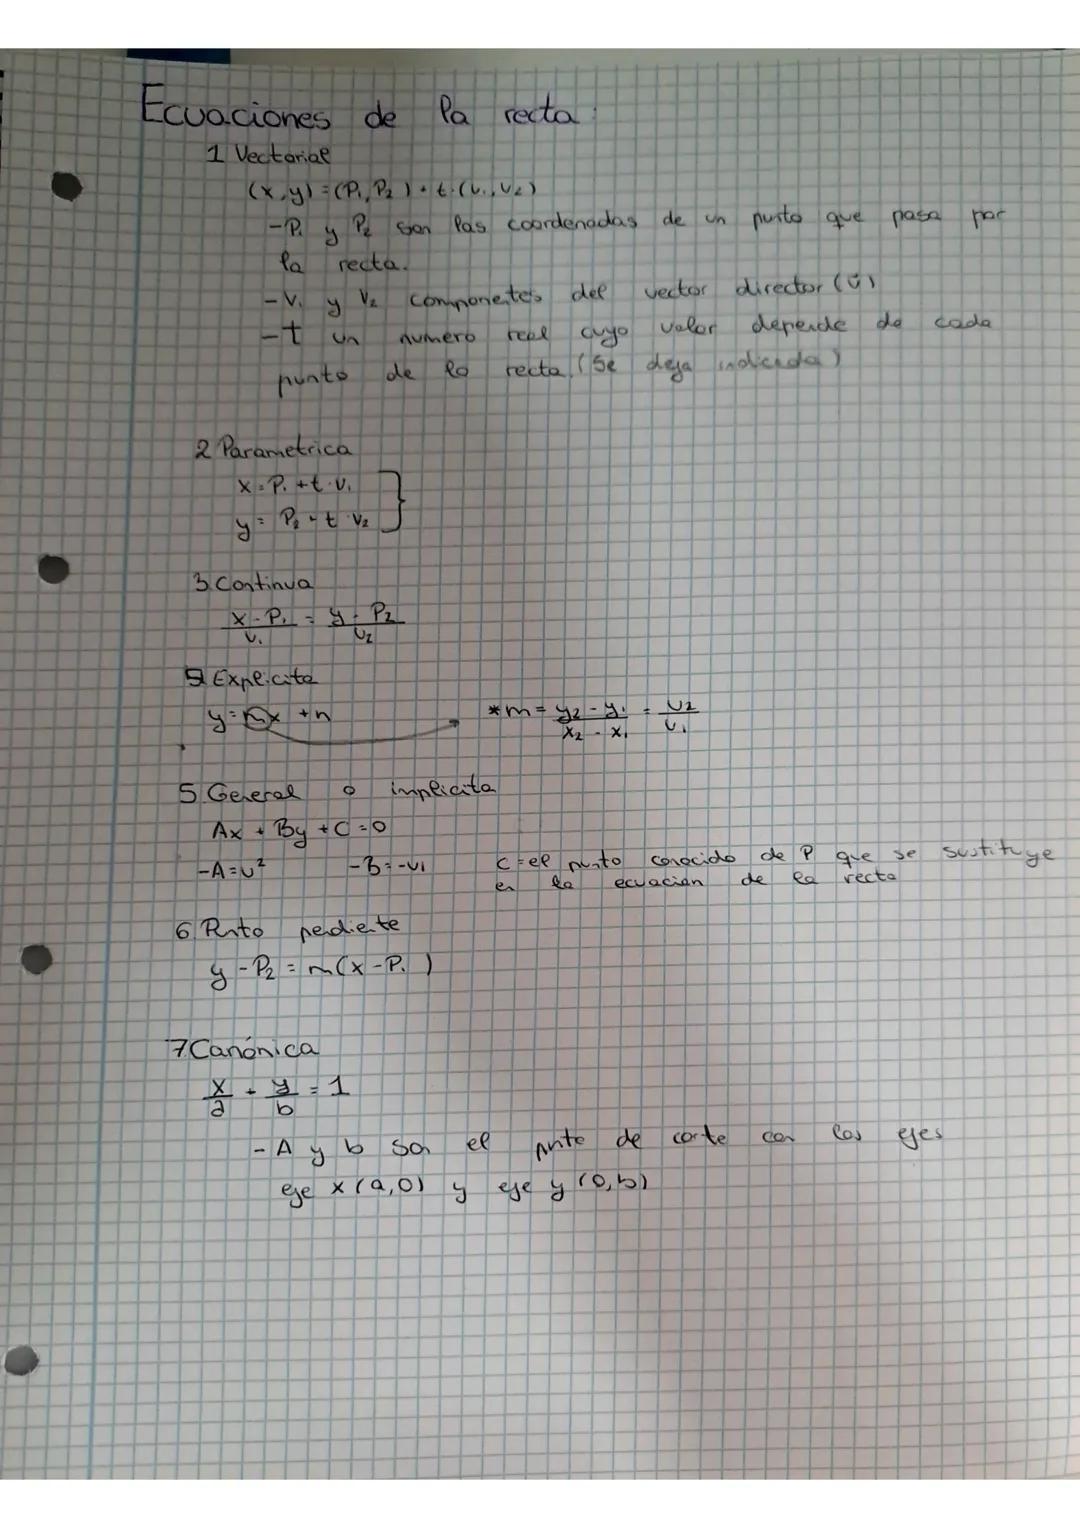 Ecuaciones de la recta:
1 Vectorial
(x,y)=(P₁,P₂)+t·(v₁,v₂)
-P₁ y P₂ son las coordenadas de un punto que pasa por
la recta.
-V₁ y V₂ componentes del vector director (v⃗)
-t un numero real cuyo valor depende de cada
punto de la recta.(Se deja indicada)
2 Parametrica
x=P₁+t·v₁
y=P₂+t·v₂
3 Continua
x-P₁/v₁ = y-P₂/v₂
4 Explicita
y=mx+n *m=y₂-y₁/x₂-x₁=v₂/v₁
5 General o implicita
Ax+By+C=0
-A=v² -B=-v₁ C=el punto conocido de P que se sustituye
en la ecuacion de la recta
6 Punto pendiente
y-P₂=m(x-P₁)
7 Canónica
x/a+y/b=1
-A y b son el punto de corte con los ejes
eje x(a,0) y eje y(0,b)